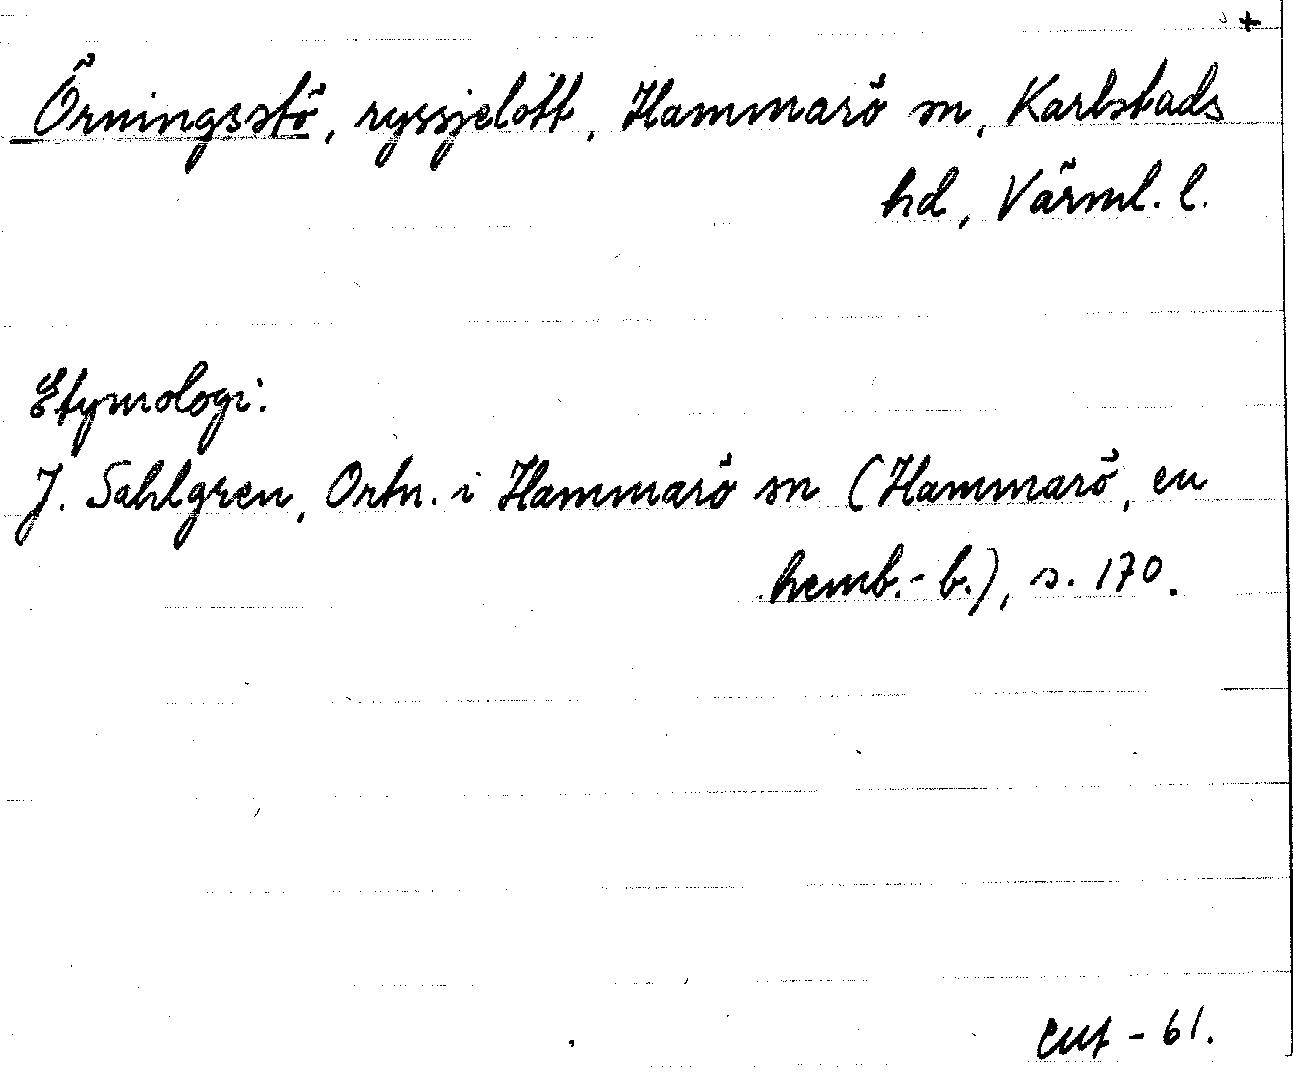 +
Örningsstö, ryssjelott, Hammarö sn, Karlstads
hd, Värml. l.
Etymologi:
J. Sahlgren, Ortn. i Hammarö sn (Hammarö, en
hemb.-b.), s. 170.
-61.